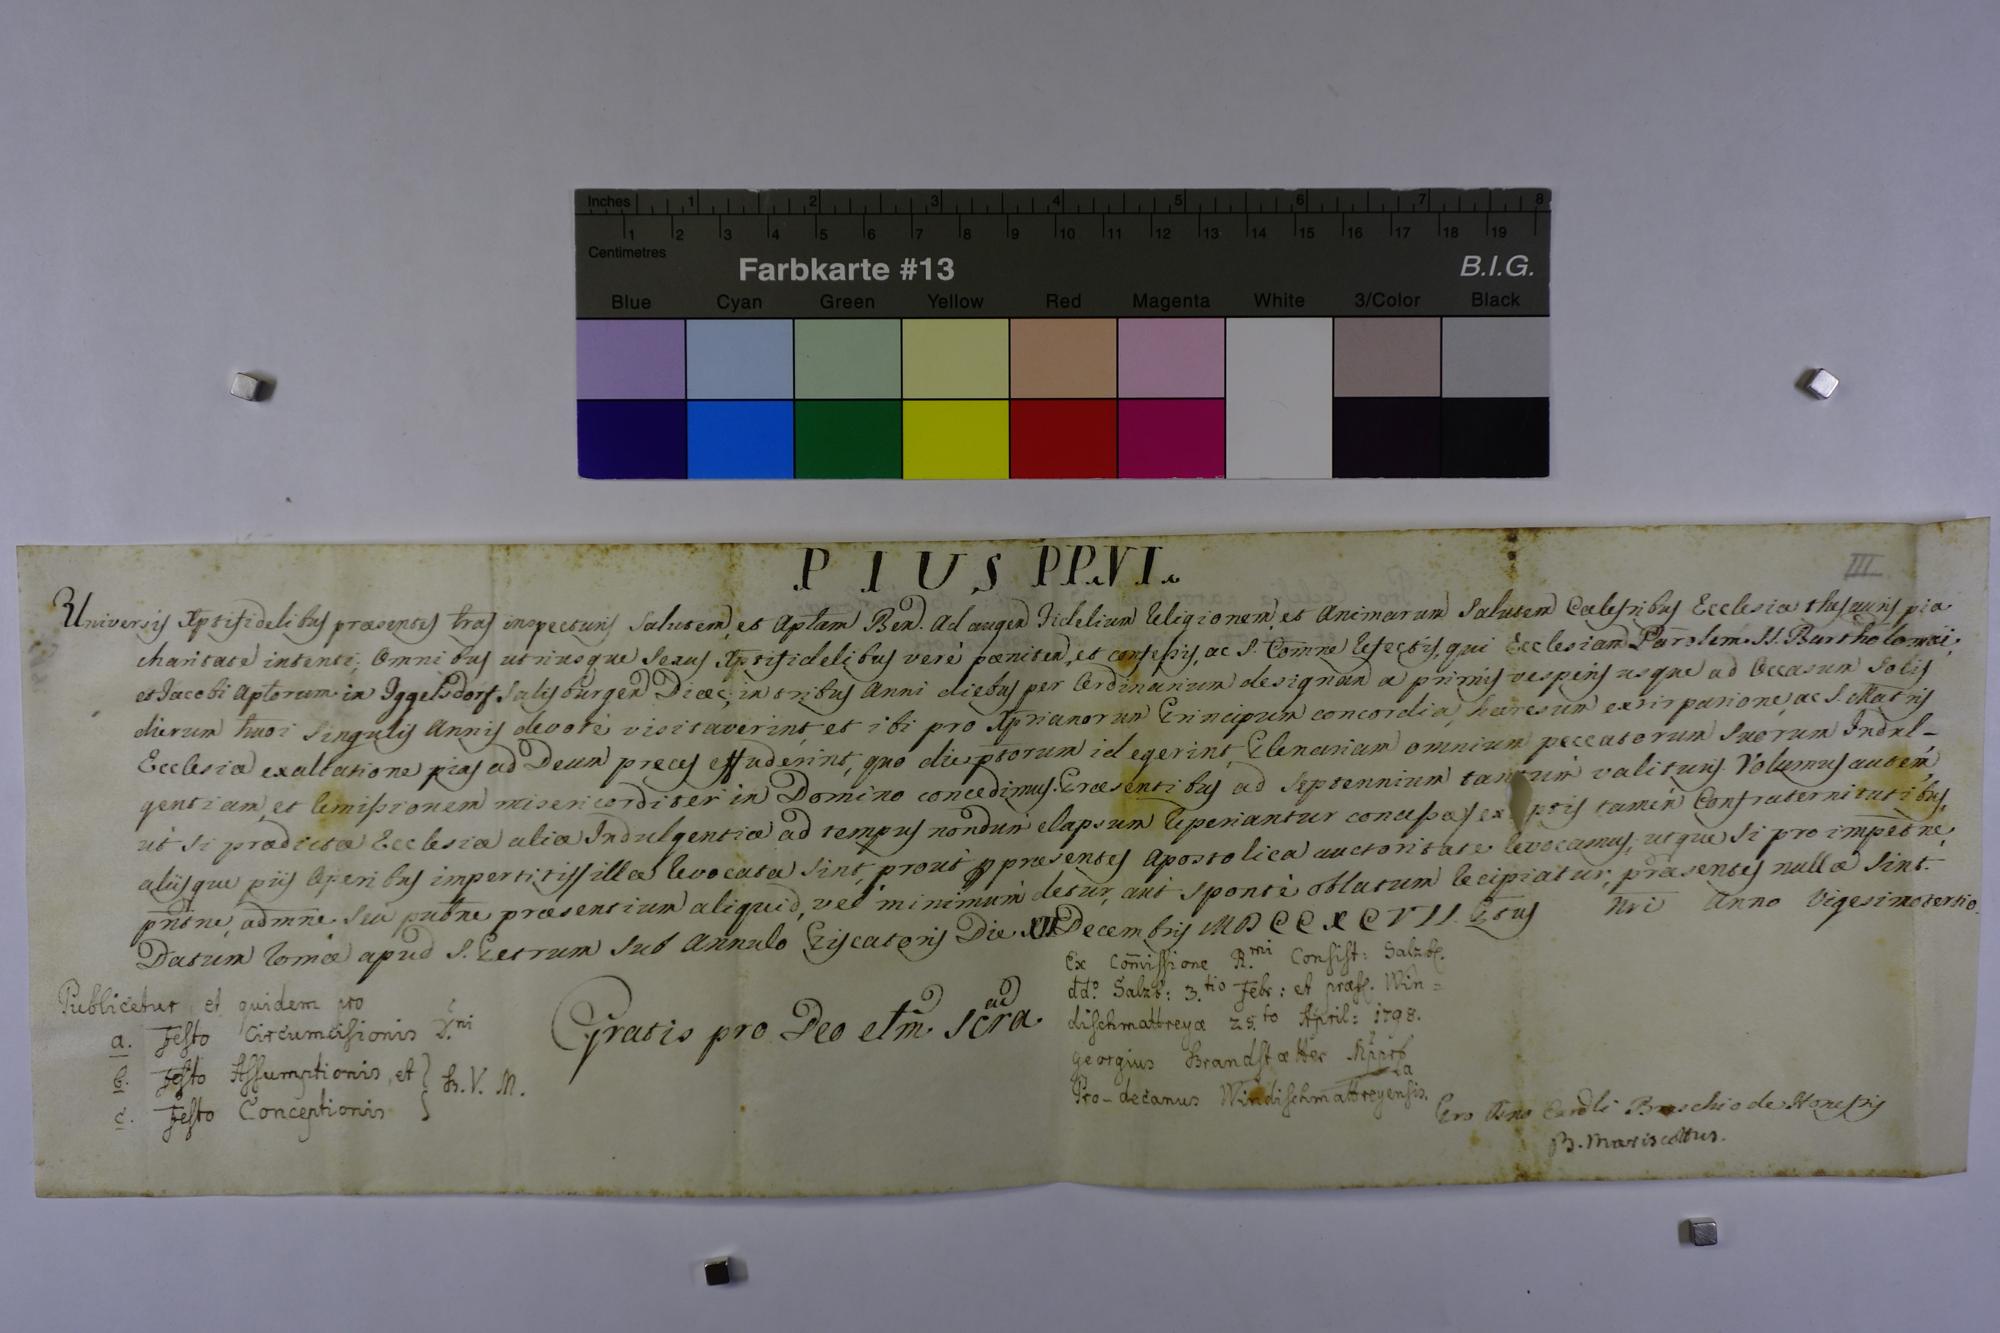 Inches 1 2 3 4 5 6 7 8
1 2 3 4 5 6 7 8 9 10 11 12 13 14 15 16 17 18 19
Centimetres
Farbkarte #13 B.I.G.
Blue Cyan Green Yellow Red Magenta White 3/Color Black
PIUS PP.VI.
III
Universis Xptifidelibus præsentes lras inspecturis Salutem, et Aplam Ben. Ad augen Fidelium Religionem, et Animarum Salutem Cælestibus Ecclesiæ thesauris pia
charitate intenti; Omnibus utriusque Sexus Xptifidelibus verè pæniten, et confessis, ac S. Comne refectis, qui Ecclesiam Parolem SS. Bartholomæi,
et Jacobi Aptorum in Iggelsdorf, Salisburgen Diœc; in tribus Anni diebus per Ordinarium designan a primis vesperis usque ad Occasum Solis
dierum hmoi Singulis Annis devotè visitaverint, et ibi pro Xprianorum Principum concordia, hæresum extirpatione, ac S. Matris
Ecclesiæ exaltatione pias ad Deum preces effuderint, quo die pptorum id egerint, Plenariam omnium peccatorum Suorum Indul-
gentiam, et Remissionem misericorditer in Domino concedimus. Præsentibus ad Septennium tantum valituris. Volumus autem
ut Si prædictæ Ecclesiæ aliæ Indulgentiæ ad tempus nondum elapsum reperiantur concessæ, ex ptis tamen Confraternitatibus,
aliisque piis Operibus impertitis, illæ revocatæ Sint, prout p præsentes Apostolica auctoritate revocamus, utque Si pro impetne,
pntne, admne, Seu pubne præsentium aliquid, vel minimum detur, aut Sponte oblatum recipiatur, præsentes nullæ Sint.
Datum Romæ apud S. Petrum Sub Annulo Piscatoris Die XII Decembris MDCCXCVII. Ptus Nri Anno Vigesimotertio.
Publicetur, et quidem pro
a. Festo Circumcisionis D.ni
b. Festo Assumptionis, et } B. V. M.
c. Festo Conceptionis
Gratis pro Deo etm Scra
Ex Com̄issione R.mi Consist: Salzb.
dd.o Salzb: 3.tio Febr: et præs. Win=
dischmattreyæ 25.to April: 1798.
Georgius Brandstætter
Pro-decanus Windischmattreyensis.
Pro Dno Cardli Braschio de Honestis
B. Mariscottus.